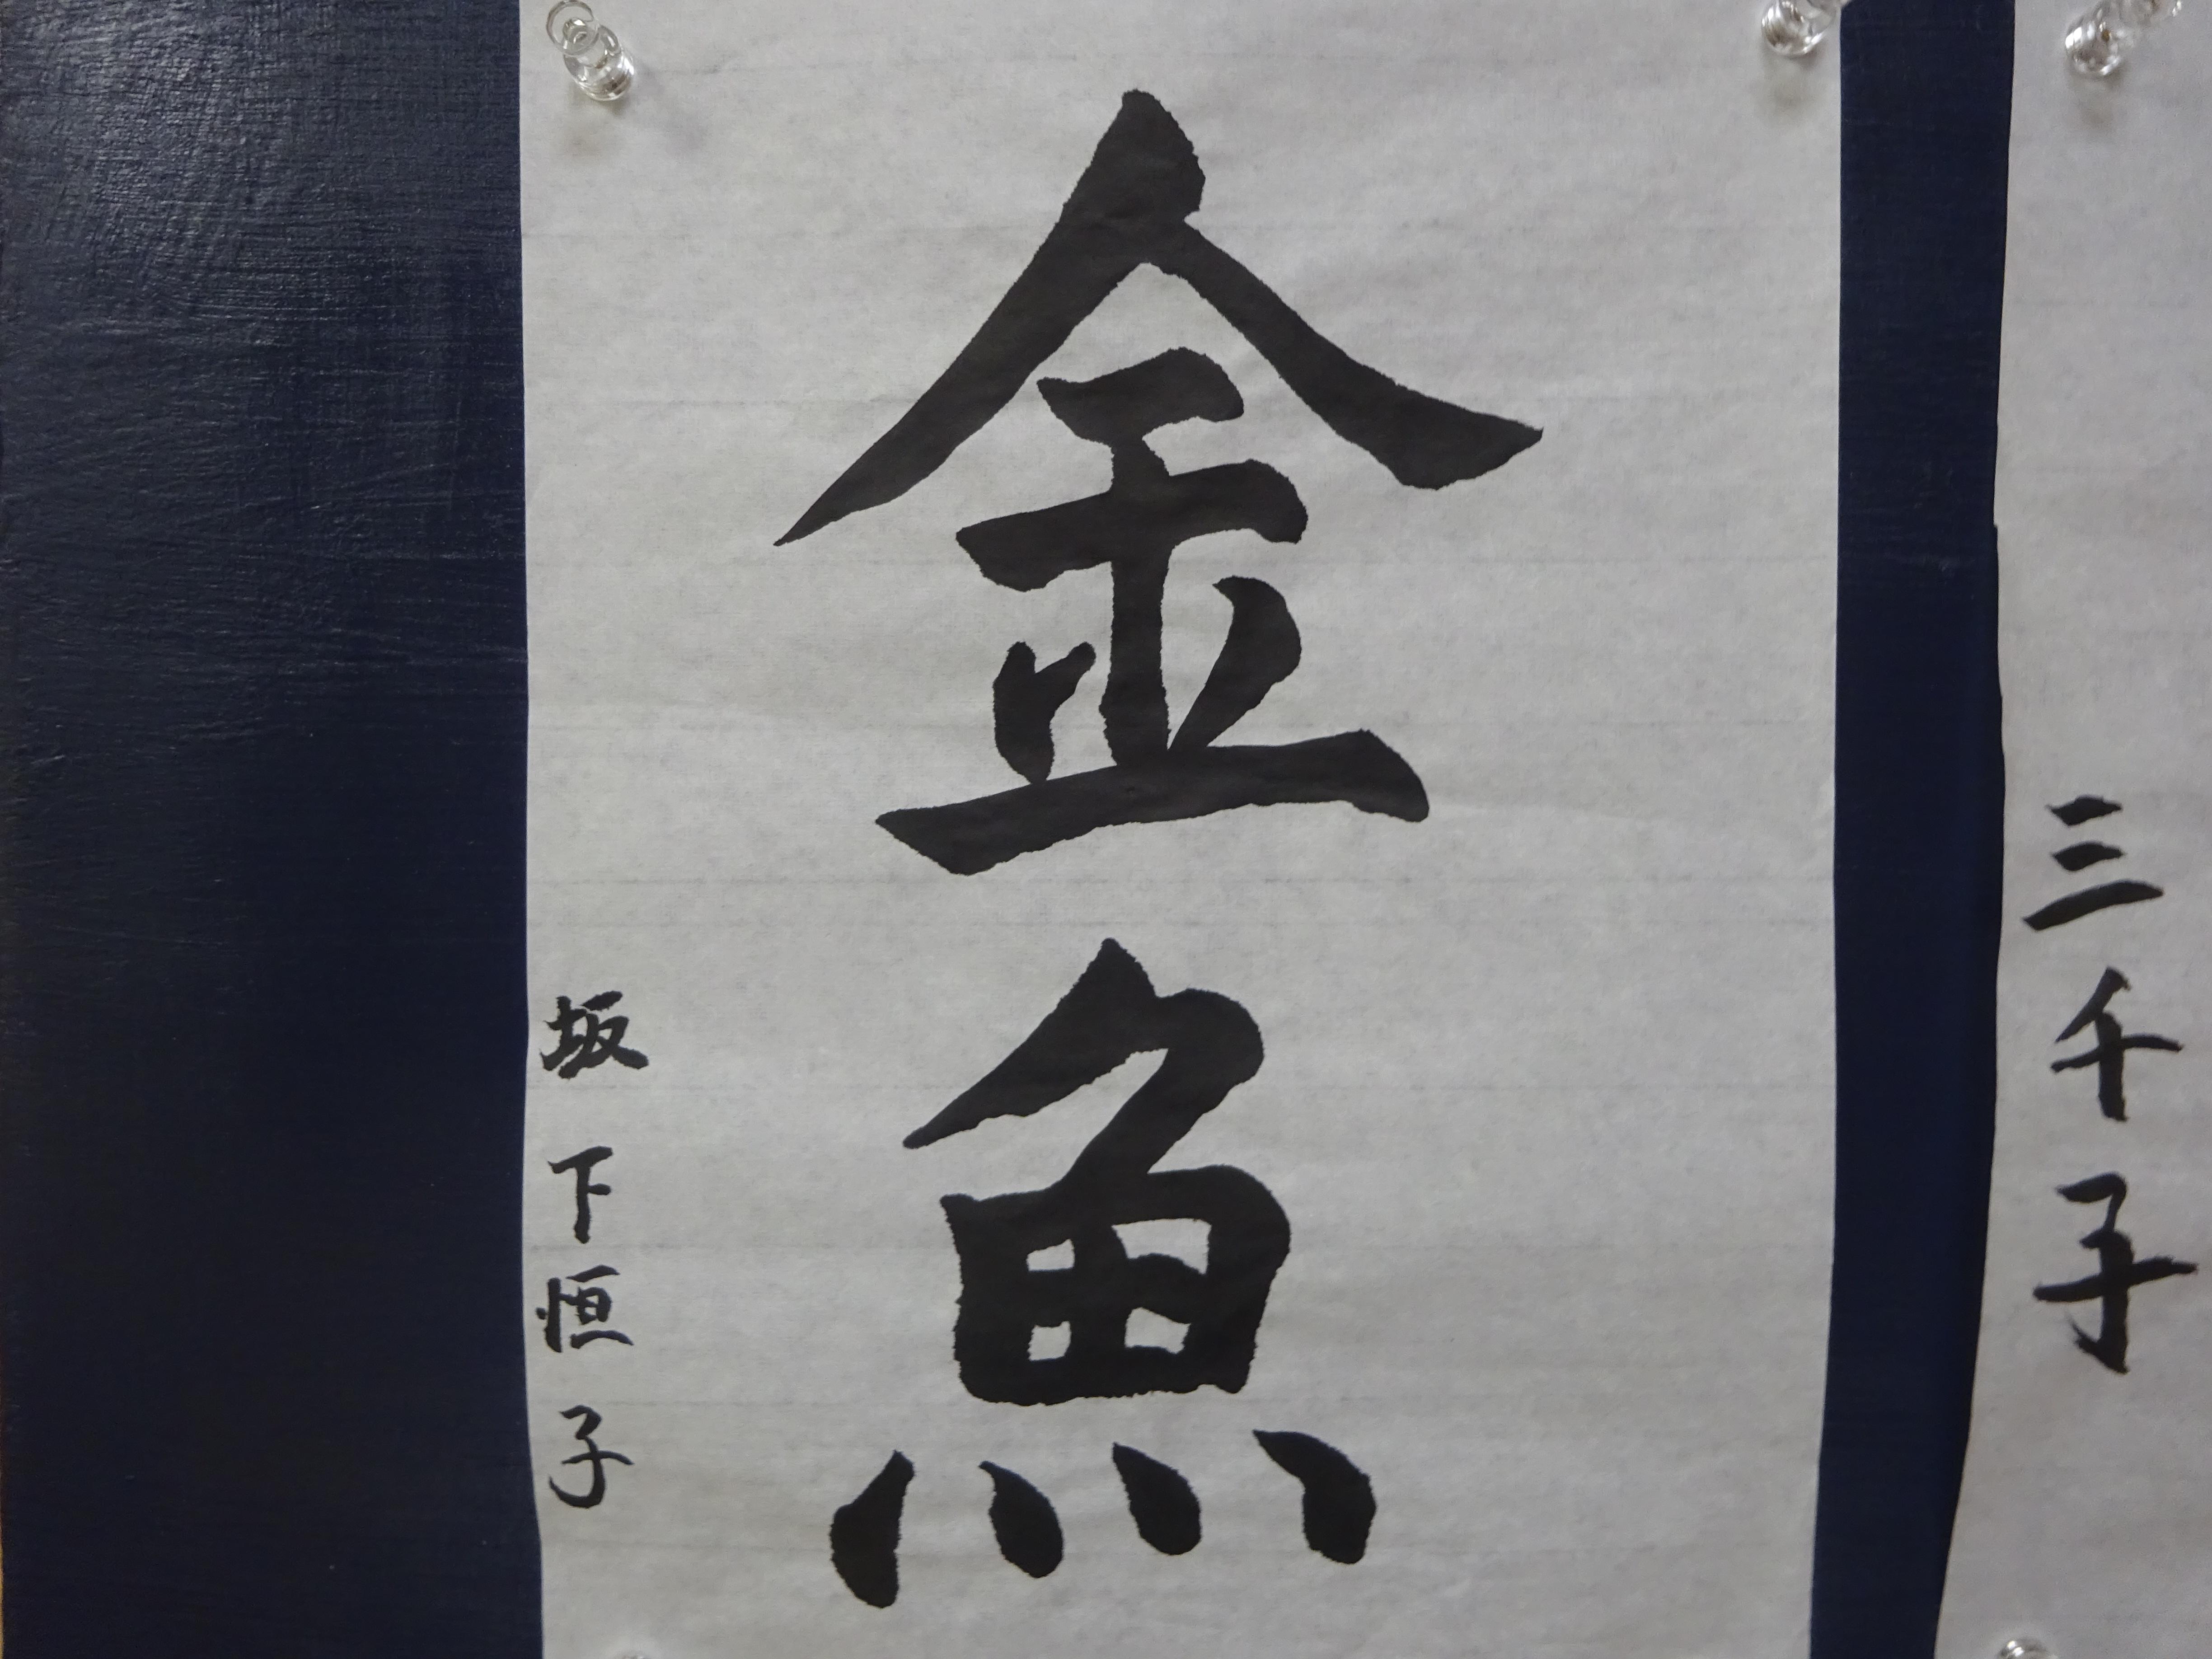 三千子
金魚
坂下恒子